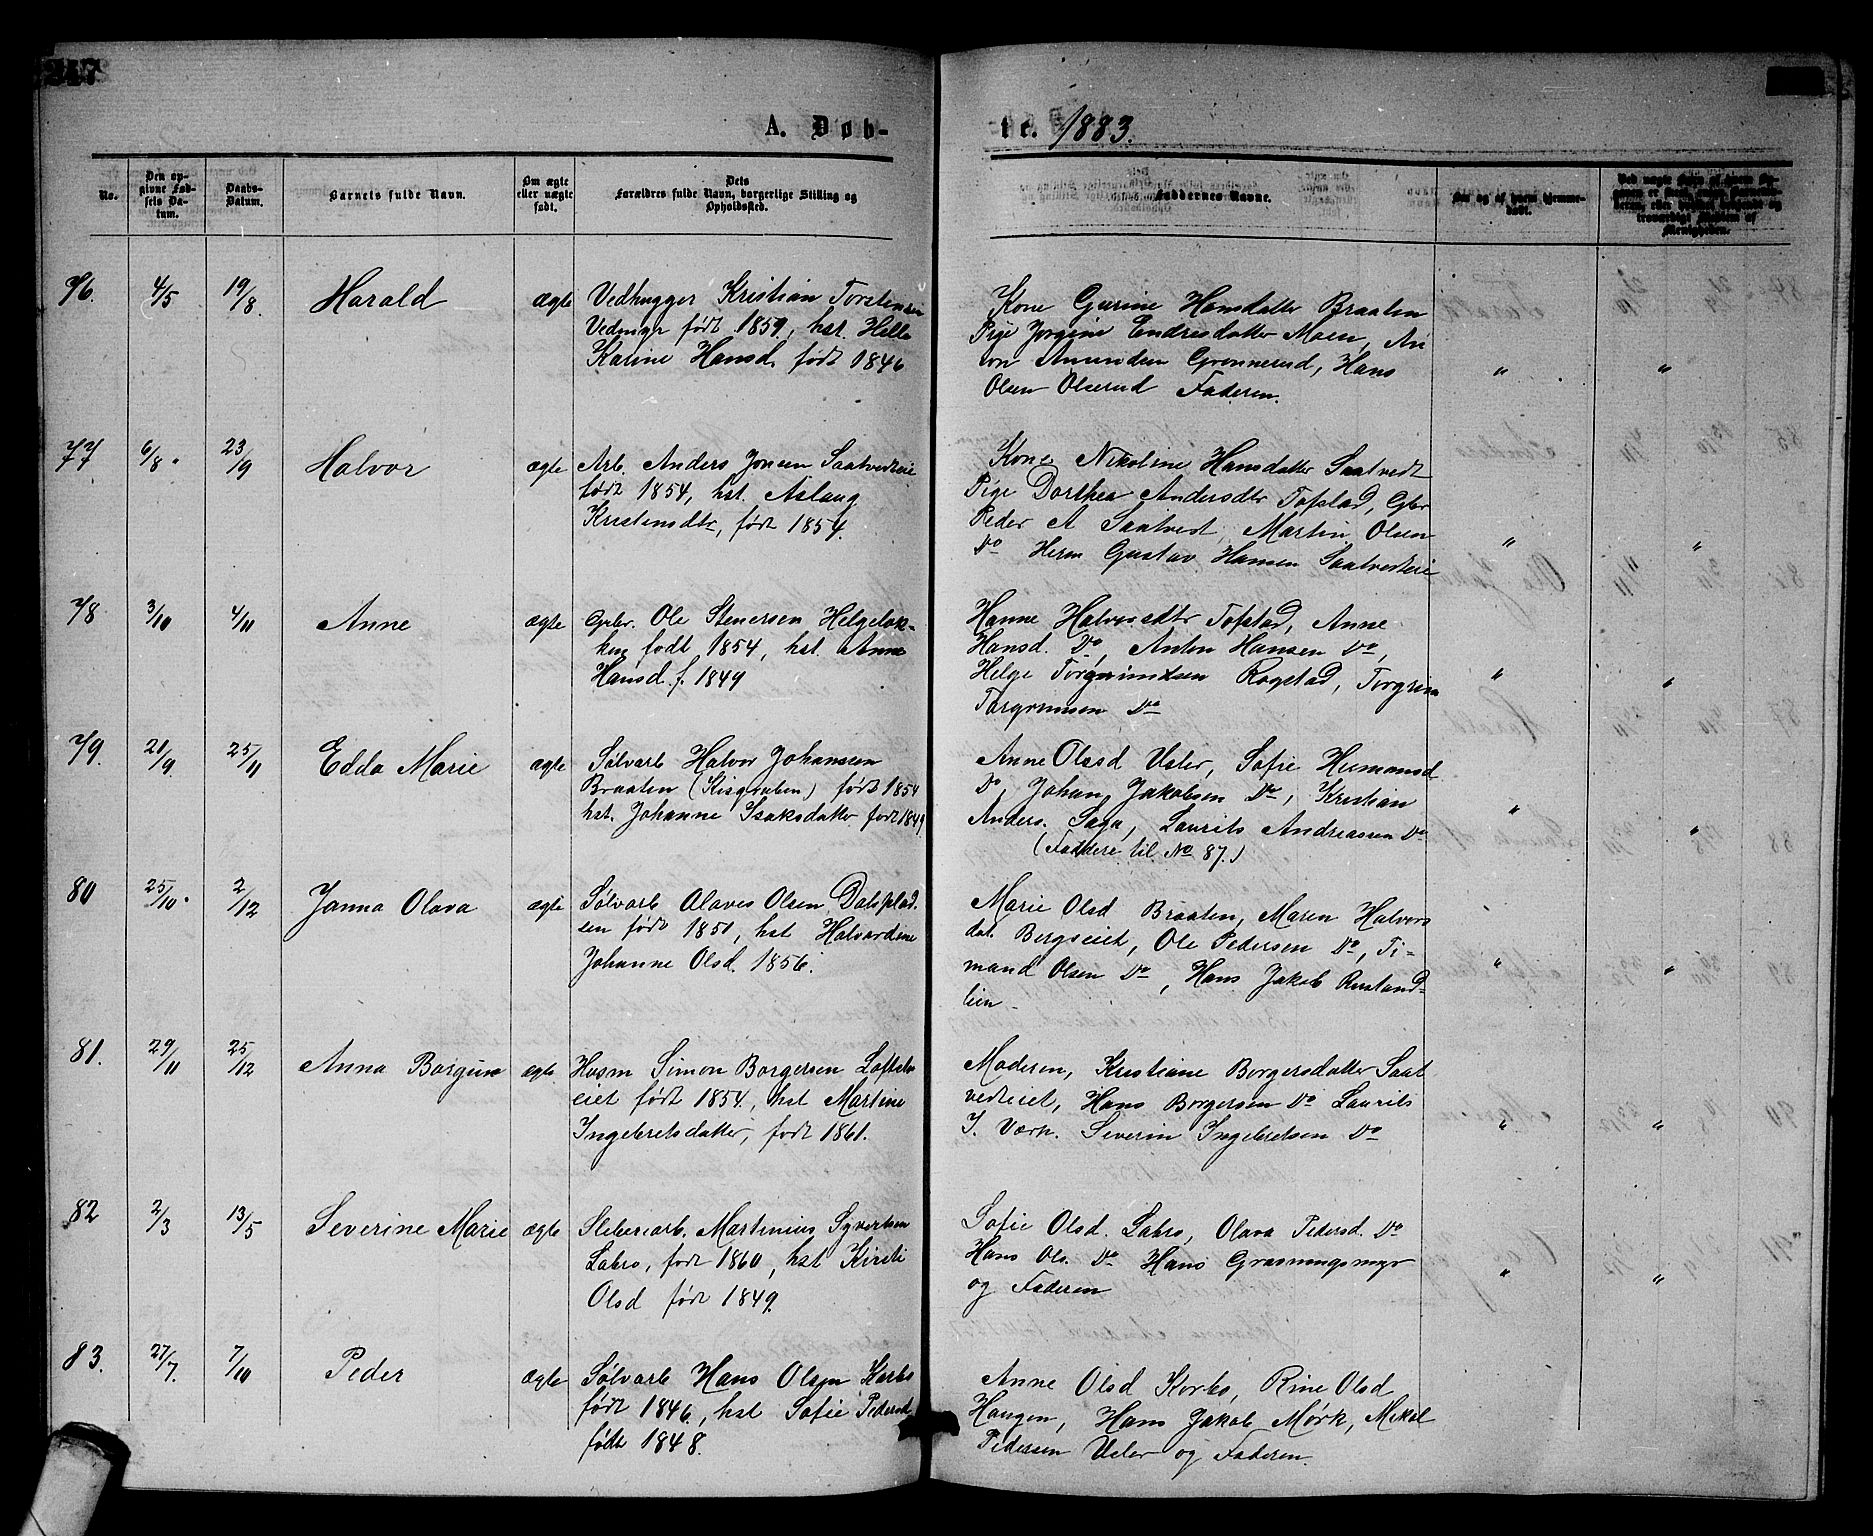 247
A. Døb-
te. 1883.
No.
Den op-
givne Fød-
sels Da-
tum.
Daabs-
Datum.
Barnets fulde Navn.
Om ægte
eller uægte
født.
Dets
Forældres fulde Navn, borgerlige Stilling og
Opholdssted.
Faddernes Navne.
Naar og af hvem hjemme-
døbt.
76. 4/5 19/8. Harald ægte
Vedhugger Kristian Torstensen
født 1859, hst. Helle
Karine Hansd. født 1846
Kone Gurine Hansdatter Braaten
Pige Jørgine Endresdatter Moen, An
ton Amundsen Grønnerud, Hans
Olsen Olserud Faderen.
" "
77 6/8. 23/9 Halvor ægte
Arb. Anders Jonsen Saatvedteie
født 1854, hst. Aslaug
Kristensdtr, født 1854.
Kone Nikoline Hansdatter Saatvedt
Pige Dorthea Andersdtr Tofstad, Gbr
Peder A Saatvedt, Martin Olsen
Do Herm Gustav Hansen Saatvedteie
" "
78 3/10 4/11 Anne ægte
Gbr. Ole Stenersen Helgeløk-
ken født 1854, hst. Anne
Hansd. f. 1849
Hanne Halvorsdtr Tofstad, Anne
Hansd. Do, Anton Hansen Do,
Helge Torgrimsen Rogstad, Torgrim
Torgrimsen Do
" "
79. 21/9 25/11 Edda Marie ægte
Sølvarb Halvor Johansen
Braaten (Kisgruben) født 1854
hst. Johanne Isaksdatter født 1849
Anne Olsd Veler, Sofie Hermansd
Do, Johan Jakobsen Do, Kristian
Anders. Saga, Laurits Andreassen Do
(Faddere til No 87.)
" "
80 25/10. 2/12 Janna Olava ægte
Sølvarb Olaves Olsen Dalsplad.
sen født 1851, hst Halvardine
Johanne Olsd. 1856.
Marie Olsd Braaten, Maren Halvors
dat. Bergseiet, Ole Pedersen Do, Ti-
mand Olsen Do, Hans Jakob Rustand-
lien
" "
81. 29/11 25/12 Anna Borgine ægte
Husm Simon Borgersen Loftsbr
eiet født 1854, hst Martine
Ingebretsdatter, født 1861.
Moderen, Kristiane Borgersdatter Saat
vedteiet, Hans Borgersen Do Laurits
I. Værk. Severin Ingebretsen Do
" "
82 2/3 13/5 Severine Marie ægte
Sliberiarb. Martinius Syvertsen
Labro, født 1860, hst Kirsti
Olsd født 1849.
Sofie Olsd. Labro, Olava Pedersd. Do
Hans Ols. Do Hans Grosvningsmyr
og Faderen
" "
83. 27/7. 7/10 Peder ægte
Sølvarb Hans Olsen Korbo
født 1846, hst Sofie Pedersd
født 1848.
Anne Olsd Korbo, Rine Olsd
Haugen, Hans Jakob Mørk, Mikal
Pedersen Veler og Faderen.